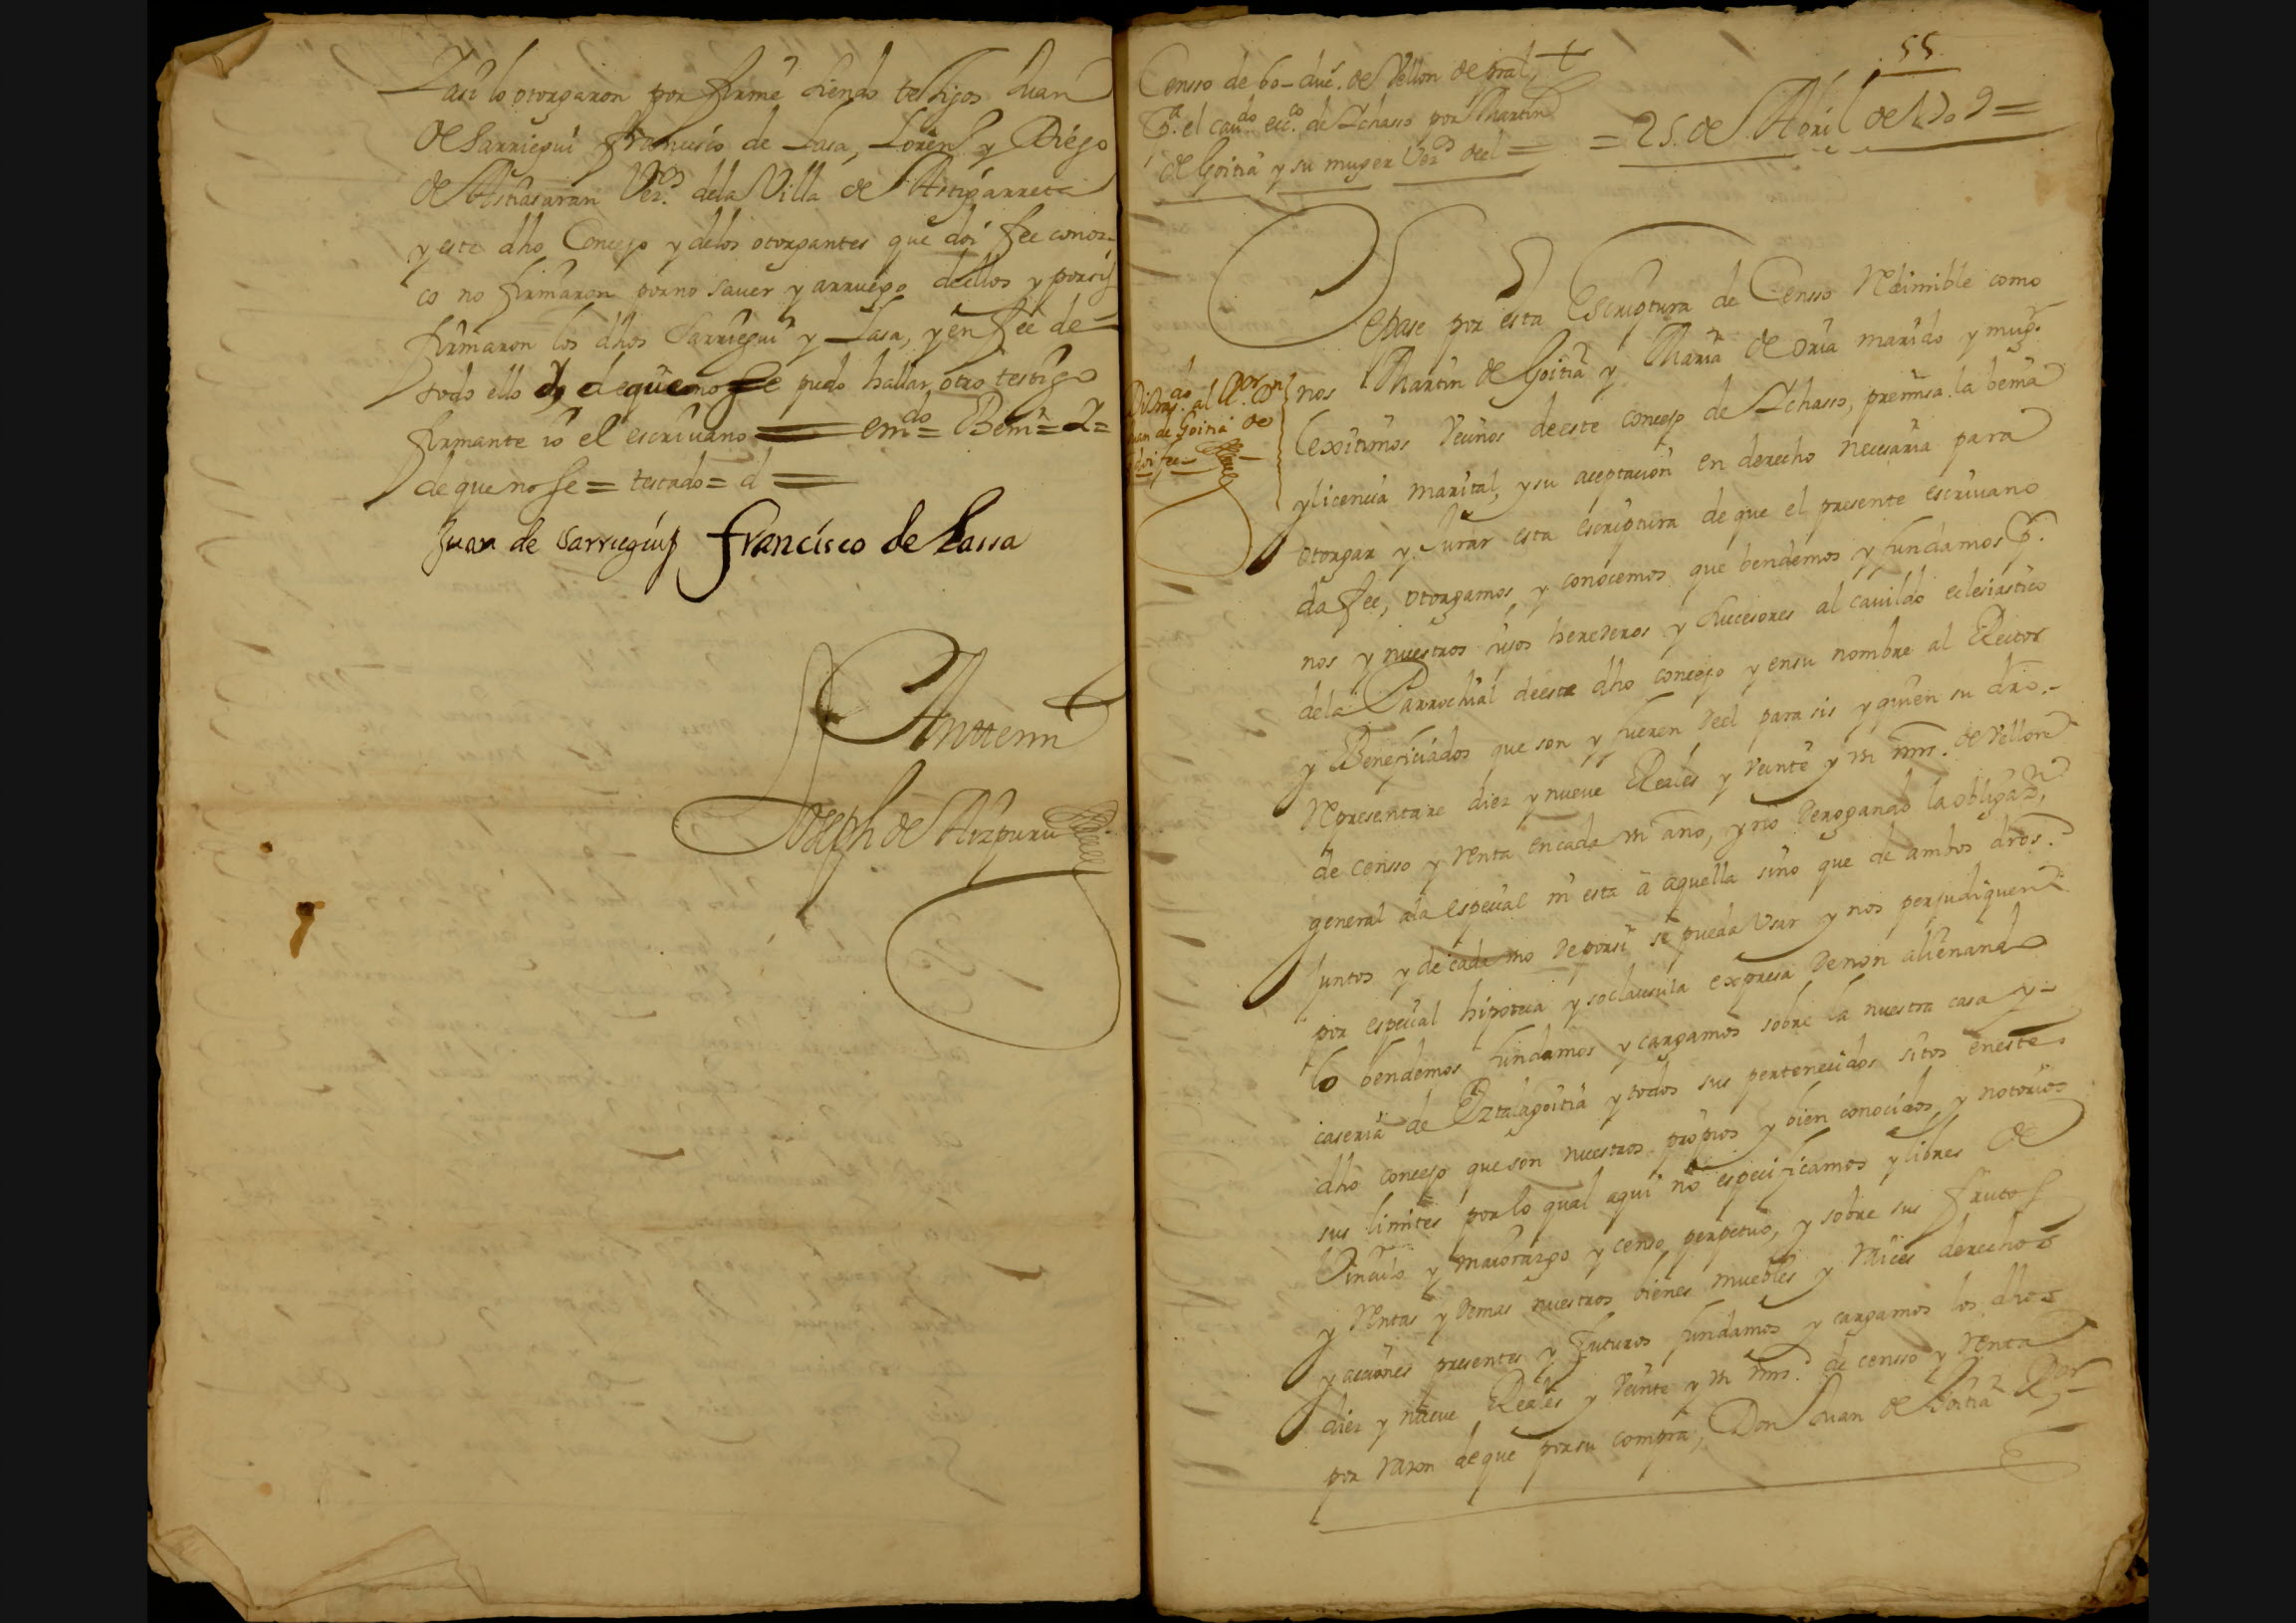 Y asi lo otorgaron por firme siendo testigos Juan
de Sarriegui Francisco de Lasa, Loren y Diego
de Astiasaran Vez.os dela Villa de Astigarreta
y este dho Concejo y delos otorgantes que doi fee conoz-
co no firmaron por no saver y arruego dellos y por si
firmaron los dhos Sarriegui y Lasa, y en fee de
todo ello de que no se pudo hallar otro testigo
firmante io el escrivano = em.do = Bem.n = L =
de que no se = testado = d =
Juan de Sarriegui Francisco de Lassa
Anttemi
Joseph de Aizpuru
55
Censso de 60 duc.s de Vellon de pral
p.a el cav.do ecc.co de Ichasso por Martin
de Goitia y su muger Vez.os deel =
= 25. de Abril de 1709 =
Sepase por esta Escriptura de Censso Redimible como
nos Martin de Goitia y Maria de Oria marido y mug.r
lexitimos vecinos deeste concejo de Ichasso, premisa la benia
y licencia marital, y su aceptacion en derecho necesaria para
otorgar y Jurar esta escriptura de que el presente escrivano
da fee, otorgamos y conocemos que bendemos y fundamos p.r
nos y nuestros hijos herederos y succesores al cavildo eclesiastico
dela Parrochial deeste dho concejo y ensu nombre al Rector
y Beneficiados que son y fueren deel para sis y quien su dro.
representare diez y nueve Reales y veinte y un mrs. de vellon
de censso y renta encada un año, y no derogando la obligaz.n
general ala especial ni esta a aquella sino que de ambos dros.
juntos y de cada uno deporsi se pueda Usar y nos perjudiquen
por especial hipoteca y so clausula expresa de non alienando
lo bendemos fundamos y cargamos sobre la nuestra casa y
caseria de Iztalagoitia y todos sus pertenecidos sitos eneste
dho concejo que son nuestros propios y bien conocidos y notorios
sus limites por lo qual aqui no especificamos y libres de
Vinculo y maiorazgo y censo perpetuo, y sobre sus frutos
y rentas y demas nuestros bienes muebles y raices derechos
y acciones presentes y futuros fundamos y cargamos los dhos
diez y nueve Reales y veinte y un mrs. de censso y renta
por razon de que por su compra, Don Juan de Goitia R.or
Di tras.do al R.or Dn
Juan de Goitia de
doi fee